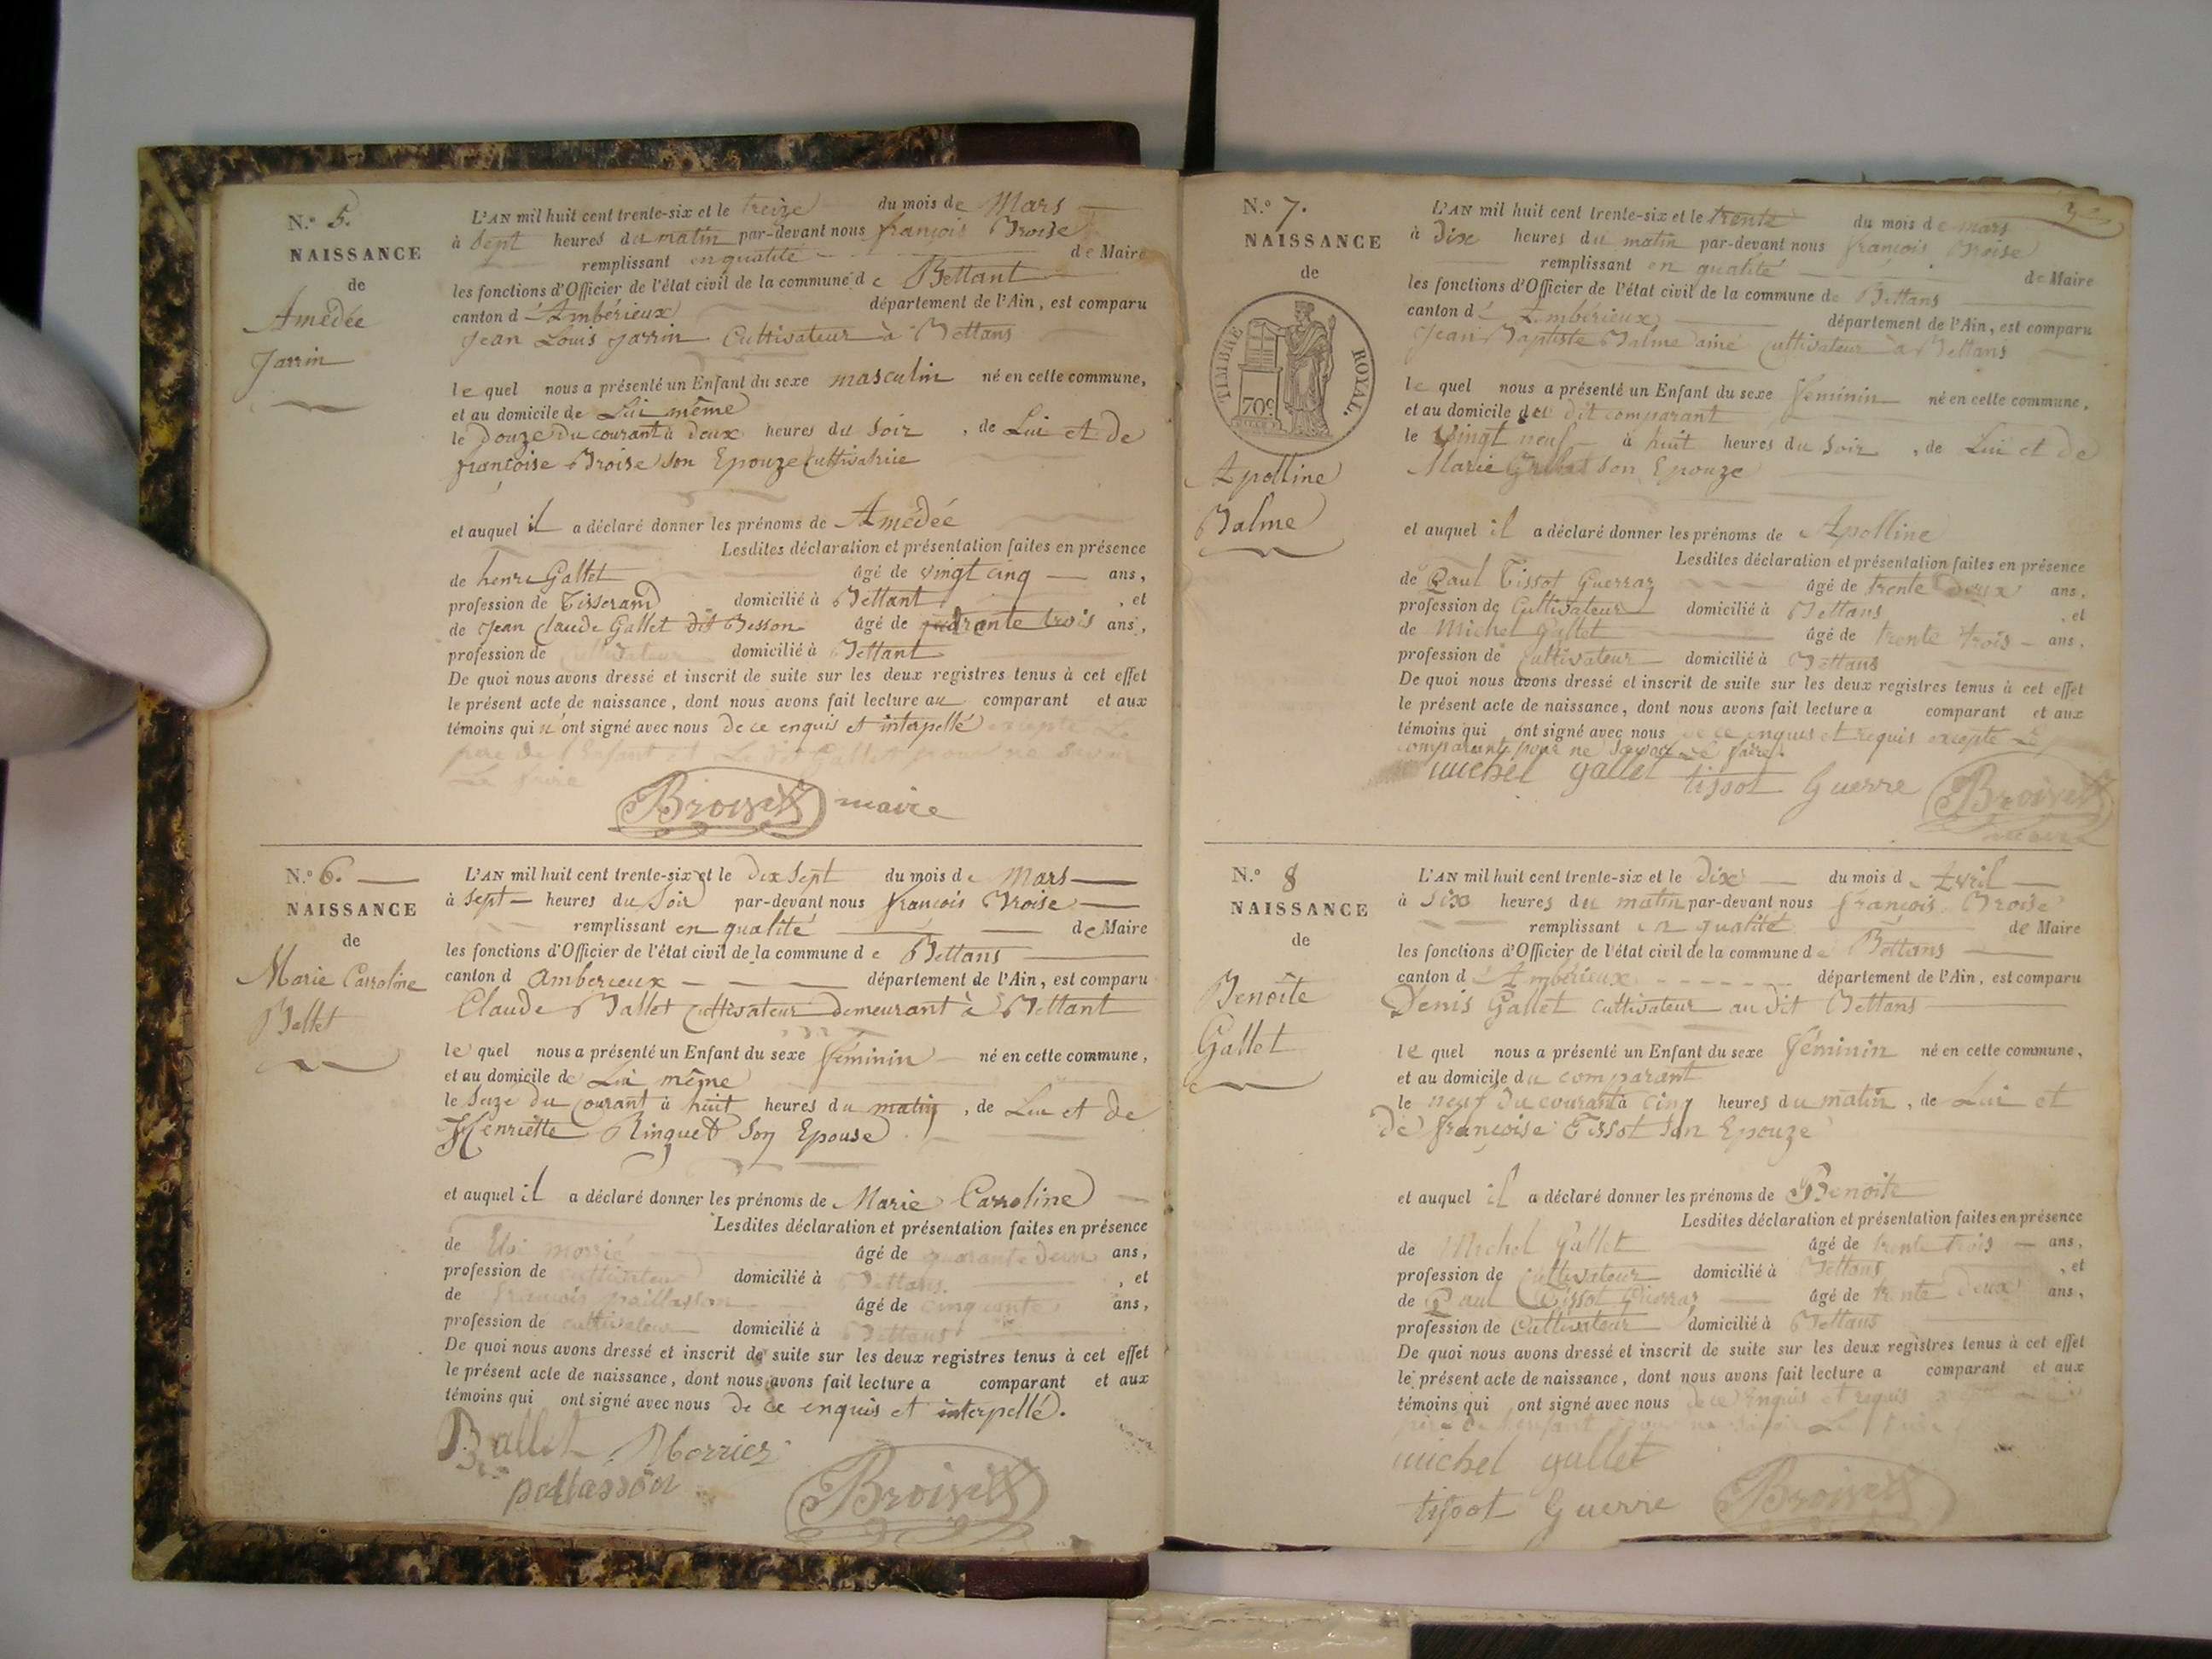 N.° 5.
NAISSANCE
de
Amédée
Jarrin
L'AN mil huit cent trente-six et le treize du mois de Mars
à Sept heures du matin par-devant nous françois Broise
remplissant en qualité de Maire
les fonctions d'Officier de l'état civil de la commune de Bettant
canton d'Ambérieux département de l'Ain, est comparu
Jean Louis Jarrin Cultivateur à Bettans
le quel nous a présenté un Enfant du sexe masculin né en cette commune,
et au domicile de Lui même
le Douze du courant à deux heures du Soir, de Lui et de
françoise Broise Son Epouze Cultivatrice
et auquel il a déclaré donner les prénoms de Amédée
Lesdites déclaration et présentation faites en présence
de henri Gallet âgé de vingt cinq ans,
profession de Tisserand domicilié à Bettant, et
de Jean Claude Gallet dit Besson âgé de quarante trois ans,
profession de cultivateur domicilié à Bettant
De quoi nous avons dressé et inscrit de suite sur les deux registres tenus à cet effet
le présent acte de naissance, dont nous avons fait lecture au comparant et aux
témoins qui n'ont signé avec nous de ce enquis et interpellé excepté Le
père de l'Enfant et Le dit Gallet pour ne Savoir
Le faire
Broiset maire
N.° 6.
NAISSANCE
de
Marie Carroline
Ballet
L'AN mil huit cent trente-six et le dix Sept du mois de Mars
à Sept heures du Soir par-devant nous françois Broise
remplissant en qualité de Maire
les fonctions d'Officier de l'état civil de la commune de Bettans
canton d Amberieux département de l'Ain, est comparu
Claude Ballet Cultivateur demeurant à Bettant
le quel nous a présenté un Enfant du sexe féminin né en cette commune,
et au domicile de Lui même
le Seize du Courant à huit heures du matin, de Lui et de
Henriette Ringuet Son Epouse
et auquel il a déclaré donner les prénoms de Marie Carroline
Lesdites déclaration et présentation faites en présence
de âgé de quarante deux ans,
profession de cultivateur domicilié à Bettans, et
de françois paillasson âgé de cinquante ans,
profession de cultivateur domicilié à Bettans
De quoi nous avons dressé et inscrit de suite sur les deux registres tenus à cet effet
le présent acte de naissance, dont nous avons fait lecture a comparant et aux
témoins qui ont signé avec nous de ce enquis et interpellé.
Ballet Morrier
pallasson Broiset
N.° 7.
NAISSANCE
de
TIMBRE ROYAL.
70c
Apolline
Balme
L'AN mil huit cent trente-six et le trente du mois de mars
à Dix heures du matin par-devant nous françois Broise
remplissant en qualité de Maire
les fonctions d'Officier de l'état civil de la commune de Bettans
canton d'Ambérieux département de l'Ain, est comparu
Jean Baptiste Balme ainé Cultivateur à Bettans
le quel nous a présenté un Enfant du sexe féminin né en cette commune,
et au domicile du dit comparant
le Vingt neuf à huit heures du Soir, de Lui et de
Marie Son Epouze
et auquel il a déclaré donner les prénoms de Apolline
Lesdites déclaration et présentation faites en présence
de Paul Tissot Guerraz âgé de trente deux ans,
profession de Cultivateur domicilié à Bettans, et
de Michel Gallet âgé de trente trois ans,
profession de Cultivateur domicilié à Bettans
De quoi nous avons dressé et inscrit de suite sur les deux registres tenus à cet effet
le présent acte de naissance, dont nous avons fait lecture a comparant et aux
témoins qui ont signé avec nous de ce enquis et requis excepté Le
comparant pour ne Savoir Le faire.
michel gallet tissot Guerre Broiset
maire
N.° 8
NAISSANCE
de
Benoite
Gallet
L'AN mil huit cent trente-six et le Dix du mois d Avril
à Six heures du matin par-devant nous françois Broise
remplissant en qualité de Maire
les fonctions d'Officier de l'état civil de la commune de Bettans
canton d'Ambérieux département de l'Ain, est comparu
Denis Gallet cultivateur au dit Bettans
le quel nous a présenté un Enfant du sexe féminin né en cette commune,
et au domicile du comparant
le neuf du courant à cinq heures du matin, de Lui et
de françoise Tissot Son Epouze
et auquel il a déclaré donner les prénoms de Benoite
Lesdites déclaration et présentation faites en présence
de Michel Gallet âgé de trente trois ans,
profession de Cultivateur domicilié à Bettans, et
de Paul Tissot Guerraz âgé de trente deux ans,
profession de Cultivateur domicilié à Bettans
De quoi nous avons dressé et inscrit de suite sur les deux registres tenus à cet effet
le présent acte de naissance, dont nous avons fait lecture a comparant et aux
témoins qui ont signé avec nous de ce Enquis et requis
père de l'enfant pour ne Savoir Le faire
michel gallet
tissot Guerre Broiset